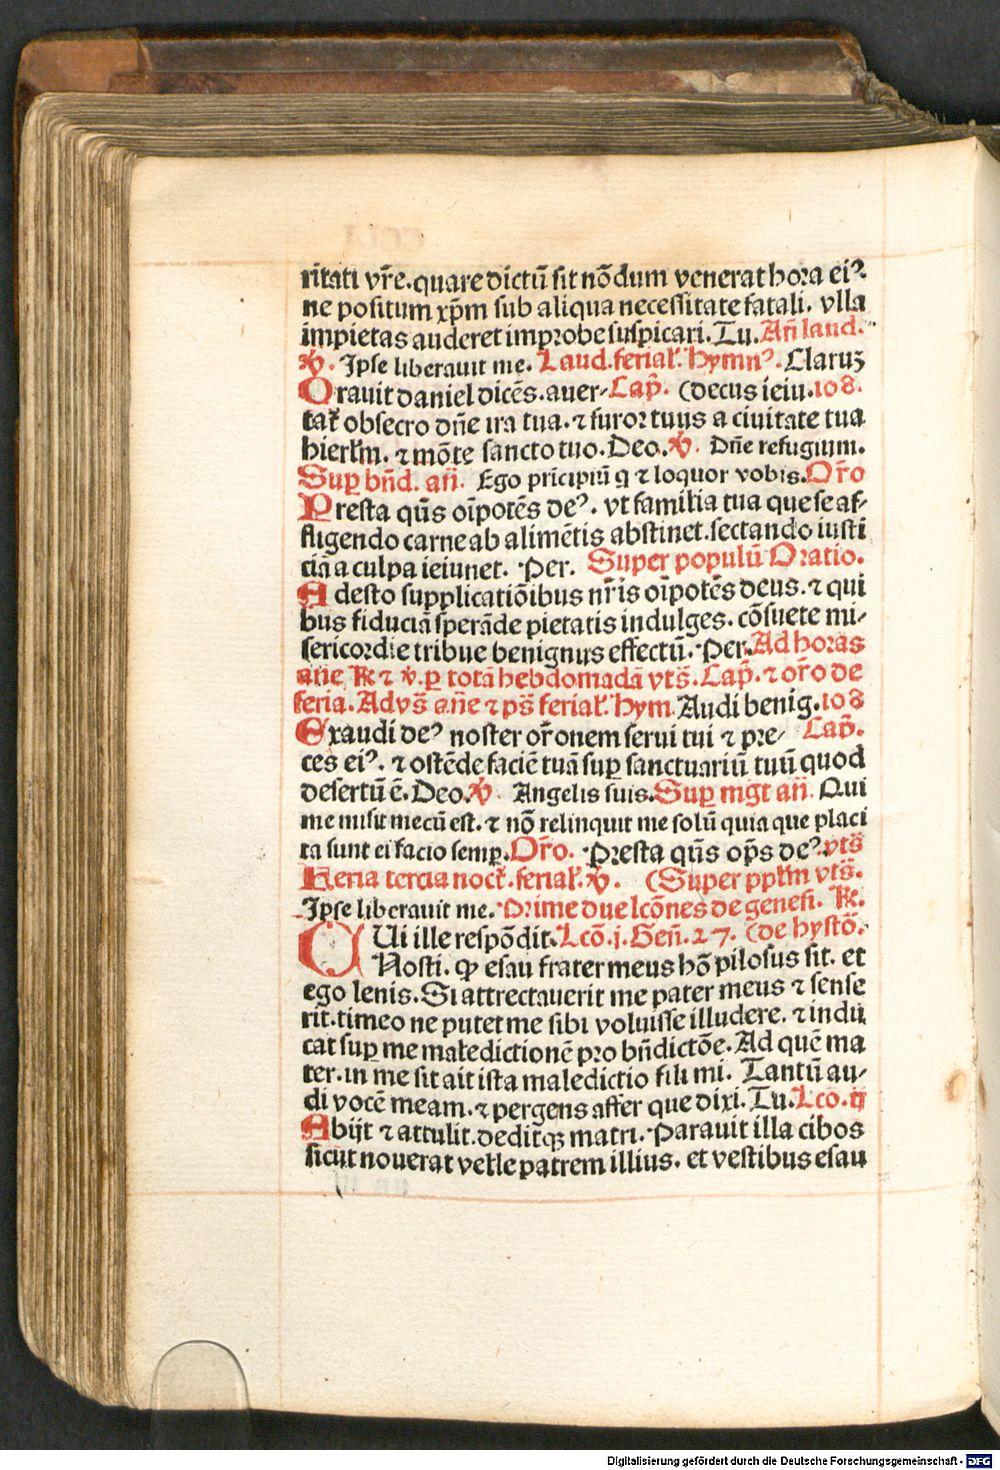 ritati vr̄e. quare dictū sit nōdum venerat hora eiꝰ
ne positum xp̄m sub aliqua necessitate fatali. vlla
impietas auderet improbe suspicari. Tu. Añ laud.
℣. Ipse liberauit me. Laud. ferial'. Hymnꝰ. Claruꝫ
Orauit daniel dicēs. auer- Cap̄. (decus ieiu. 108.
tat' obsecro dn̄e ira tua. ⁊ furor tuus a ciuitate tua
hierl'm. ⁊ mōte sancto tuo. Deo. ℣. Dn̄e refugium.
Suꝑ bn̄d. añ. Ego prīcipiū q ⁊ loquor vobis. Or̄o
Presta qūs oīpotēs deꝰ. vt familia tua que se af-
fligendo carne ab alimētis abstinet. sectando iusti
ciā a culpa ieiunet. Per. Super populū Oratio.
Adesto supplicatiōibus nr̄is oīpotēs deus. ⁊ qui
bus fiduciā sperāde pietatis indulges. cōsuete mi-
sericordie tribue benignus effectū. Per. Ad horas
ane ℟ ⁊ ℣. ꝑ totā hebdomadā vts̄. Cap̄. ⁊ or̄o de
feria. Ad vs̄ ane ⁊ ps̄ ferial'. Hym Audi benig. 108
Exaudi deꝰ noster or̄onem serui tui ⁊ pre- Cap̄.
ces eiꝰ. ⁊ ostēde faciē tuā suꝑ sanctuariū tuū quod
desertū ē. Deo. ℣ Angelis suis. Suꝑ mgt añ. Qui
me misit mecū est. ⁊ nō relinquit me solū quia que placi
ta sunt ei facio semꝑ. Or̄o. Presta qūs op̄s deꝰ. vts̄
Feria tercia noct'. ferial'. ℣. (Super ppl'm vts̄.
Ipse liberauit me. Prime due lcōnes de genesi. ℟.
QUi ille respōdit. Lcō. j. Geñ. 27. (de hystō.
Nosti. ꝙ esau frater meus hō pilosus sit. et
ego lenis. Si attrectauerit me pater meus ⁊ sense
rit. timeo ne putet me sibi voluisse illudere. ⁊ indu
cat suꝑ me maledictionē pro bn̄dictōe. Ad quē ma
ter. in me sit ait ista maledictio fili mi. Tantū au-
di vocē meam. ⁊ pergens affer que dixi. Tu. Lcō. ij
Abijt ⁊ attulit. deditqꝫ matri. Parauit illa cibos
sicut nouerat velle patrem illius. et vestibus esau
Digitalisierung gefördert durch die Deutsche Forschungsgemeinschaft - DFG